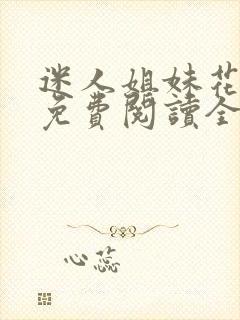 迷人姐妹花
免費閱讀全
心蕊